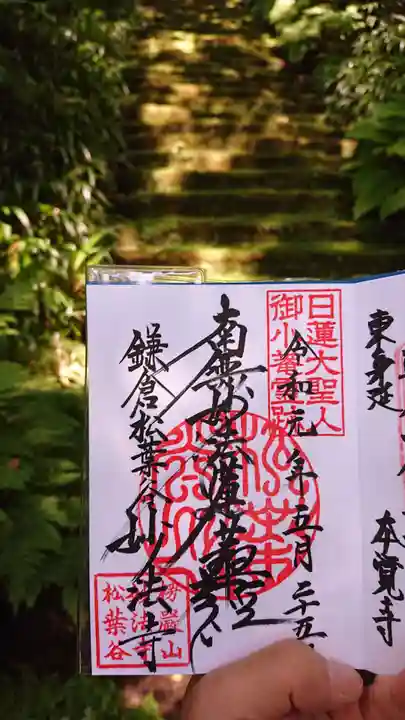 東身延
本覚寺
日蓮大聖人
御小菴霊跡
令和元年五月二十五
南無妙法蓮華経
鎌倉松葉谷妙法寺
楞嚴山
妙法寺
松葉谷